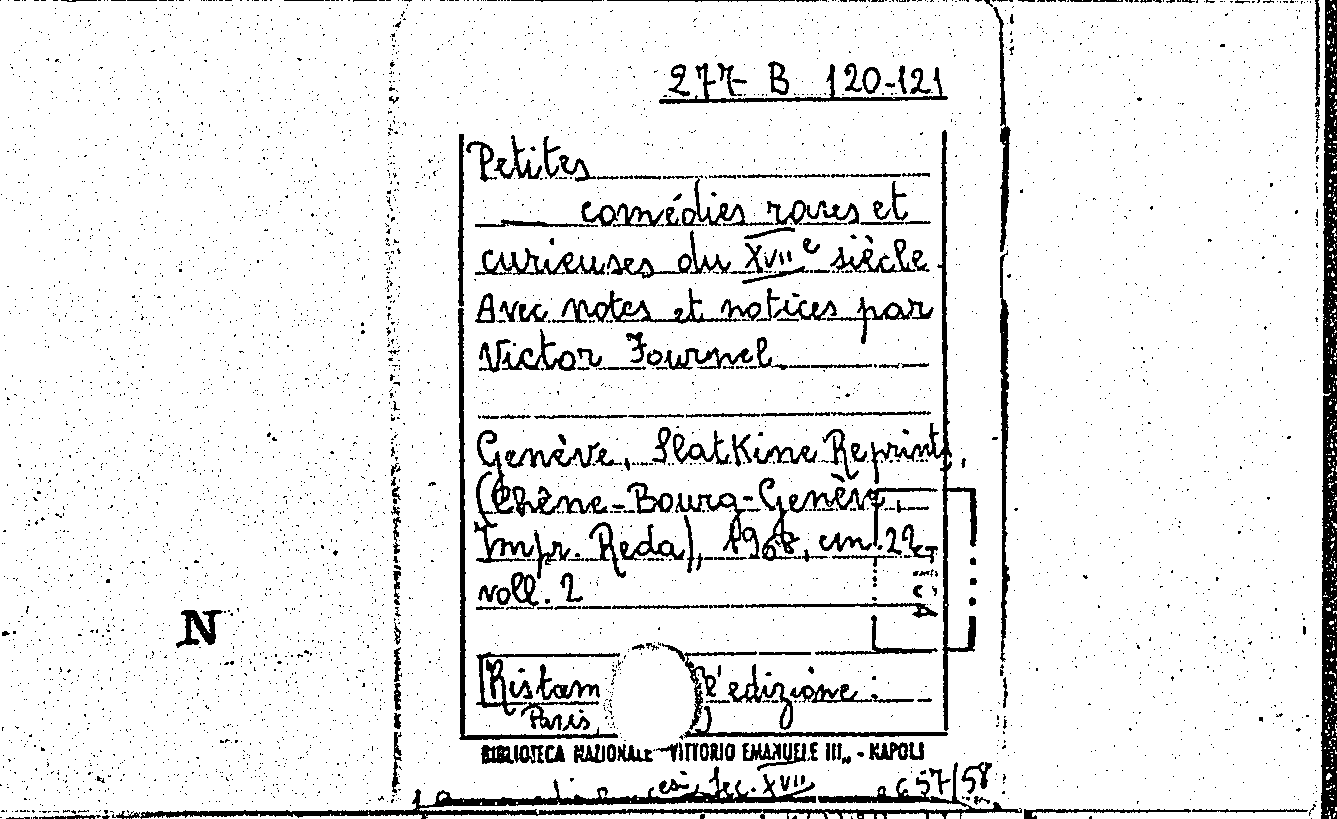 277 B 120-121
Petites
comédies rares et
curieuses du XVIIe siècle.
Avec notes et notices par
Victor Fournel
Genève, Slatkine Reprints,
(Chêne-Bourg-Genève,
Impr. Reda), 1968, cm. 22
voll. 2
N
[Ristam l'edizione:
Paris,
BIBLIOTECA NAZIONALE "VITTORIO EMANUELE III" - NAPOLI
Sec. XVII 657/58